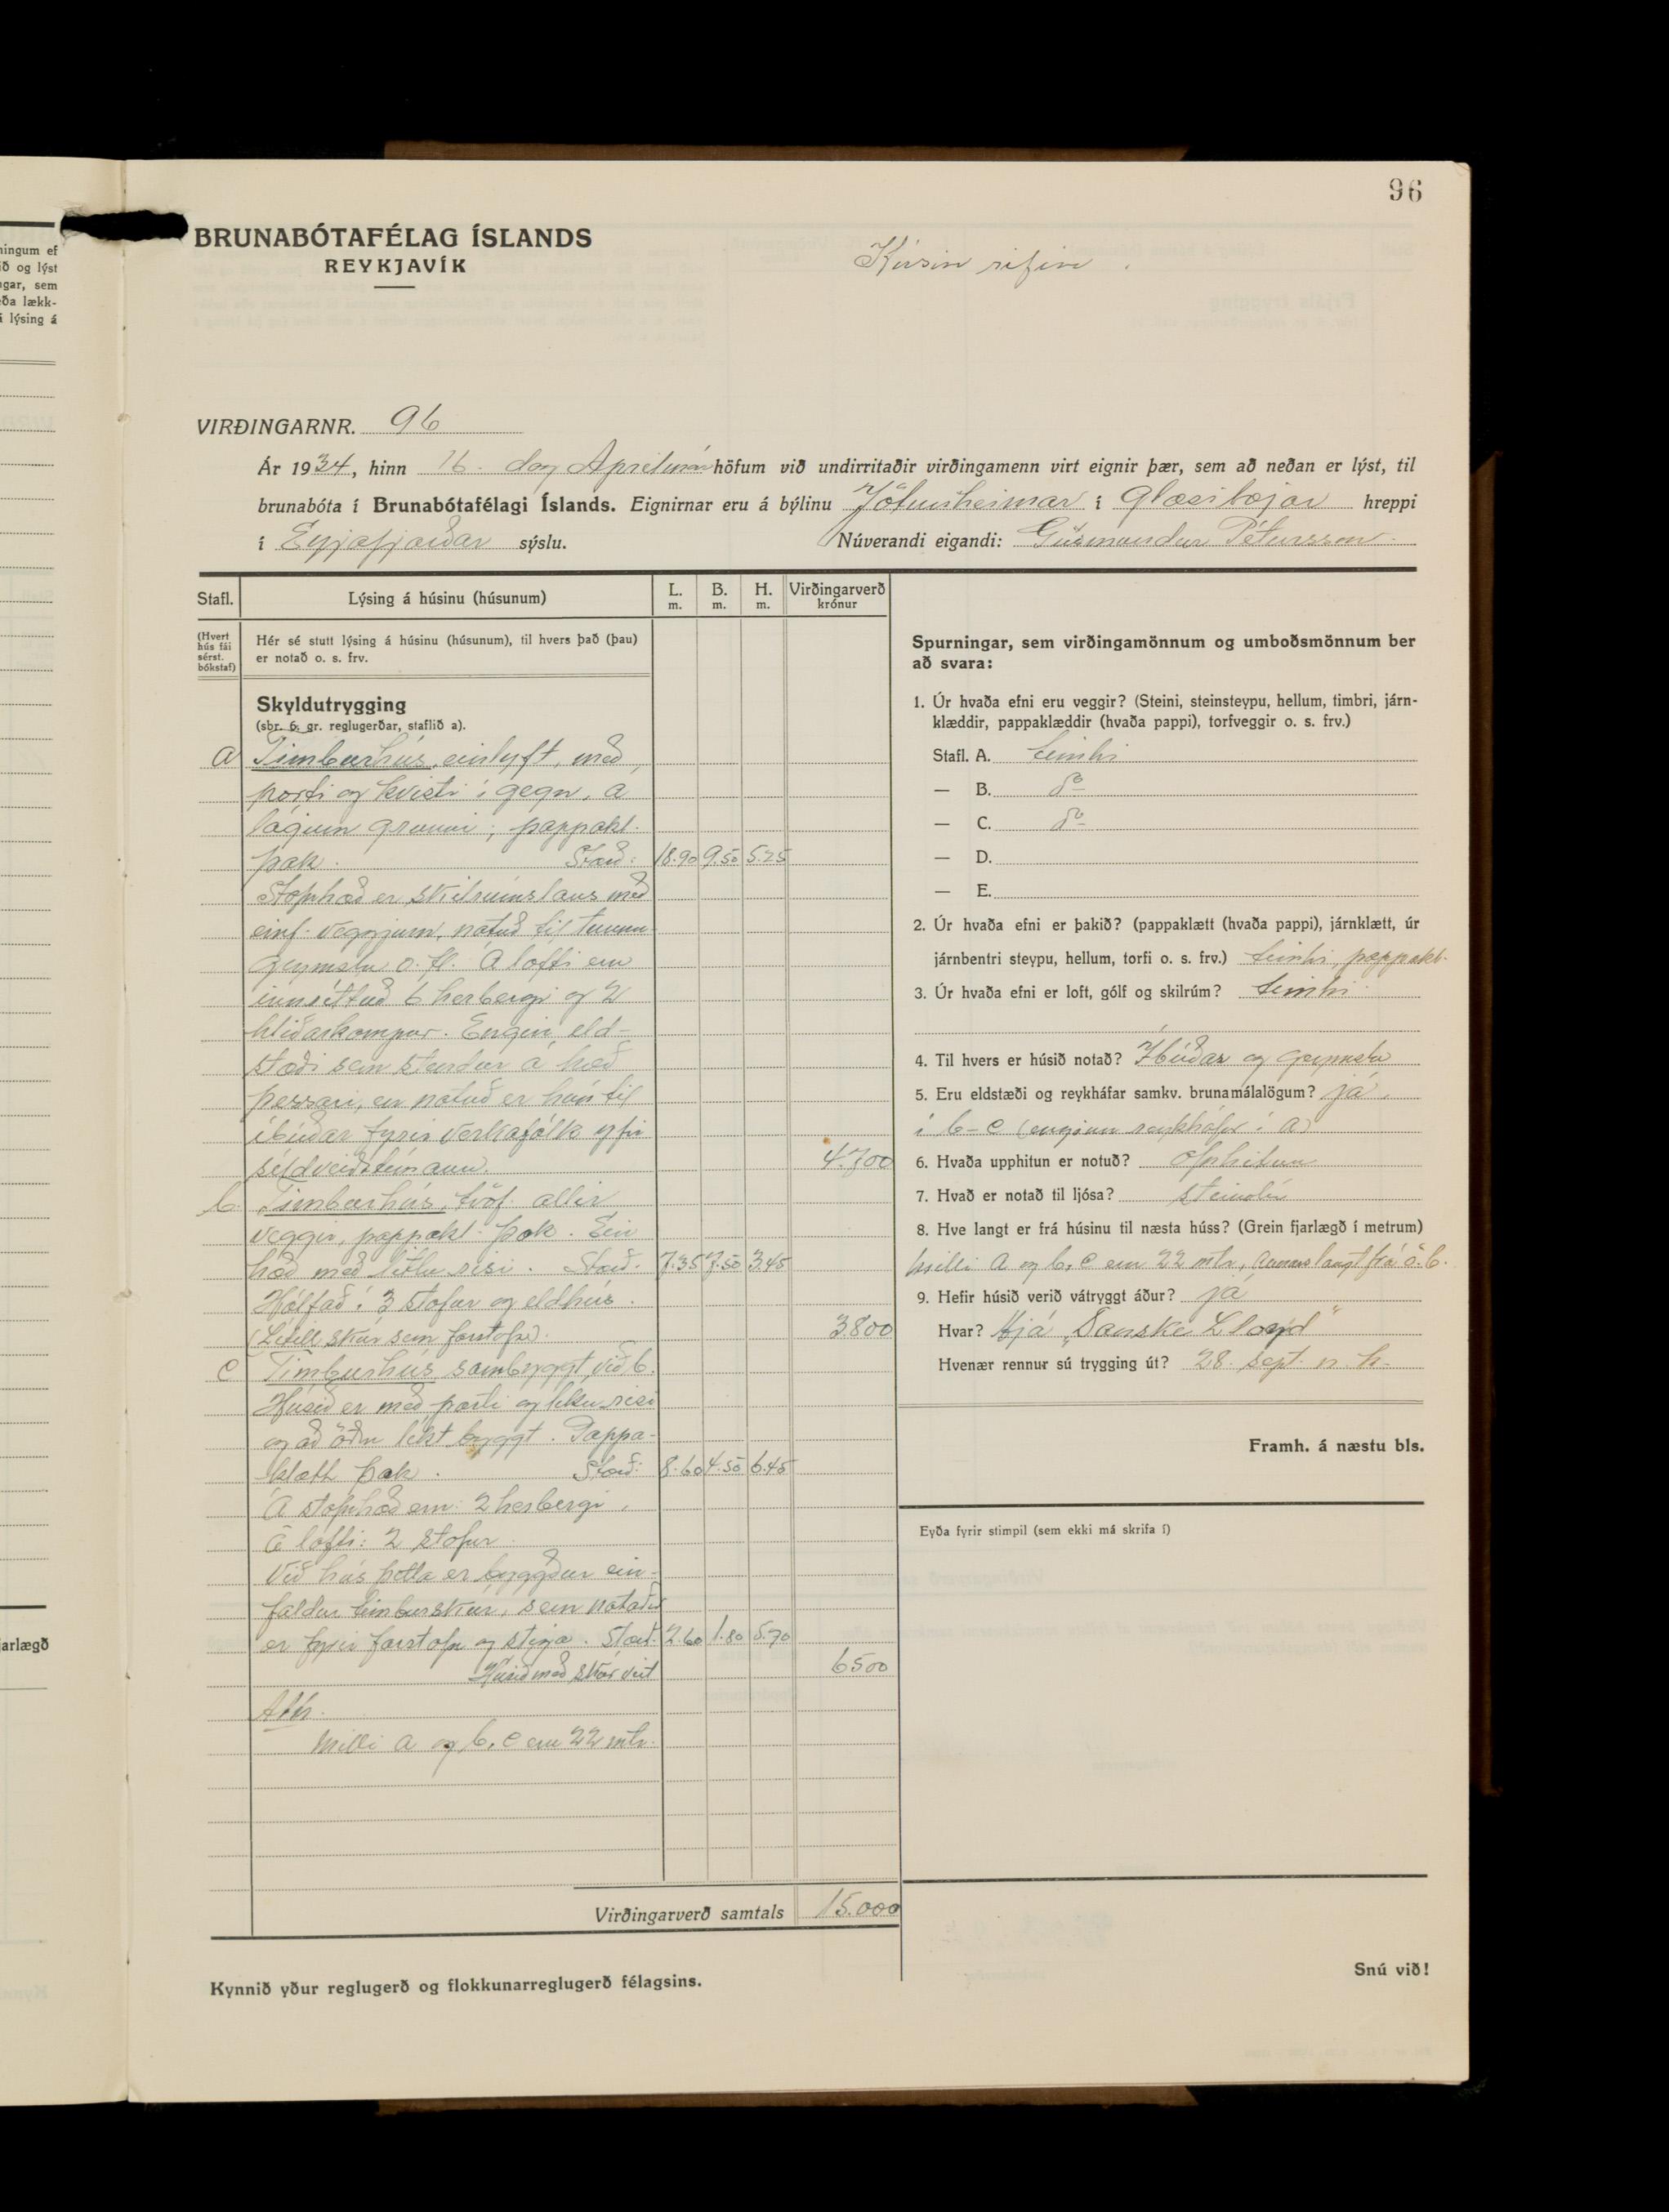 96
BRUNABÓTAFÉLAG ÍSLANDS
REYKJAVÍK
Húsin rifin.
VIRÐINGARNR. 96
Ár 1934, hinn 16. dag Aprílmán höfum við undirritaðir virðingamenn virt eignir þær, sem að neðan er lýst, til
brunabóta í Brunabótafélagi Íslands. Eignirnar eru á býlinu Jötunheimar í Glæsibæjar hreppi
í Eyjafjarðar sýslu. Núverandi eigandi: Guðmundur Pétursson.
Stafl. Lýsing á húsinu (húsunum) L. m. B. m. H. m. Virðingarverð krónur
(Hvert hús fái sérst. bókstaf)
Hér sé stutt lýsing á húsinu (húsunum), til hvers það (þau)
er notað o. s. frv.
Skyldutrygging
(sbr. 6. gr. reglugerðar, staflið a).
a Timburhús, einlyft, með
porti og kvisti í gegn, á
lágum grunni; pappakl.
þak. Stærð: 18.90 9.50 5.25
Stofuhæð er skilrúmslaus með
einf. veggjum, notuð til tunnu-
geymslu o. fl. Á lofti eru
innréttuð 6 herbergi og 2
hliðarkompur. Engin eld-
stæði sem stendur á hæð
þessari, en notuð er hún til
íbúðar fyrir verkafólk yfir
síldveiðitímann. 4.700
b. Timburhús, tvöf. allir
veggir, pappakl. þak. Ein
hæð með litlu risi. Stærð. 7.35 7.50 3.45
Hólfað í 3 stofur og eldhús.
(Lítill skúr sem forstofa). 3800
c Timburhús sambyggt við b.
Húsið er með porti og litlu risi
og að öðru líkt byggt. Pappa-
klætt þak. Stærð: 8.60 4.50 6.45
Á stofuhæð eru: 2 herbergi.
Á lofti: 2 stofur.
Við hús þetta er byggður ein-
faldur timburskúr, sem notaður
er fyrir forstofu og stiga. Stærð. 2.60 1.80 5.70
Húsið með skúr virt 6500
Ath.
Milli a og b, c eru 22 mtr.
Virðingarverð samtals 15.000
Kynnið yður reglugerð og flokkunarreglugerð félagsins.
Spurningar, sem virðingamönnum og umboðsmönnum ber
að svara:
1. Úr hvaða efni eru veggir? (Steini, steinsteypu, hellum, timbri, járn-
klæddir, pappaklæddir (hvaða pappi), torfveggir o. s. frv.)
Stafl. A. timbri
— B. do
— C. do
— D.
— E.
2. Úr hvaða efni er þakið? (pappaklætt (hvaða pappi), járnklætt, úr
járnbentri steypu, hellum, torfi o. s. frv.) timbri, pappakl.
3. Úr hvaða efni er loft, gólf og skilrúm? timbri
4. Til hvers er húsið notað? Íbúðar og geymslu
5. Eru eldstæði og reykháfar samkv. brunamálalögum? já,
í b-c (enginn reykháfur í a)
6. Hvaða upphitun er notuð? ofnhitun
7. Hvað er notað til ljósa? steinolía
8. Hve langt er frá húsinu til næsta húss? (Grein fjarlægð í metrum)
Milli a og b, c eru 22 mtr, annars langt frá ö. b.
9. Hefir húsið verið vátryggt áður? já
Hvar? Hjá „Danske Lloyd"
Hvenær rennur sú trygging út? 28. sept. n. k.
Framh. á næstu bls.
Eyða fyrir stimpil (sem ekki má skrifa í)
Snú við!
ningum ef
ið og lýst
gar, sem
eða lækk-
á lýsing á
jarlægð